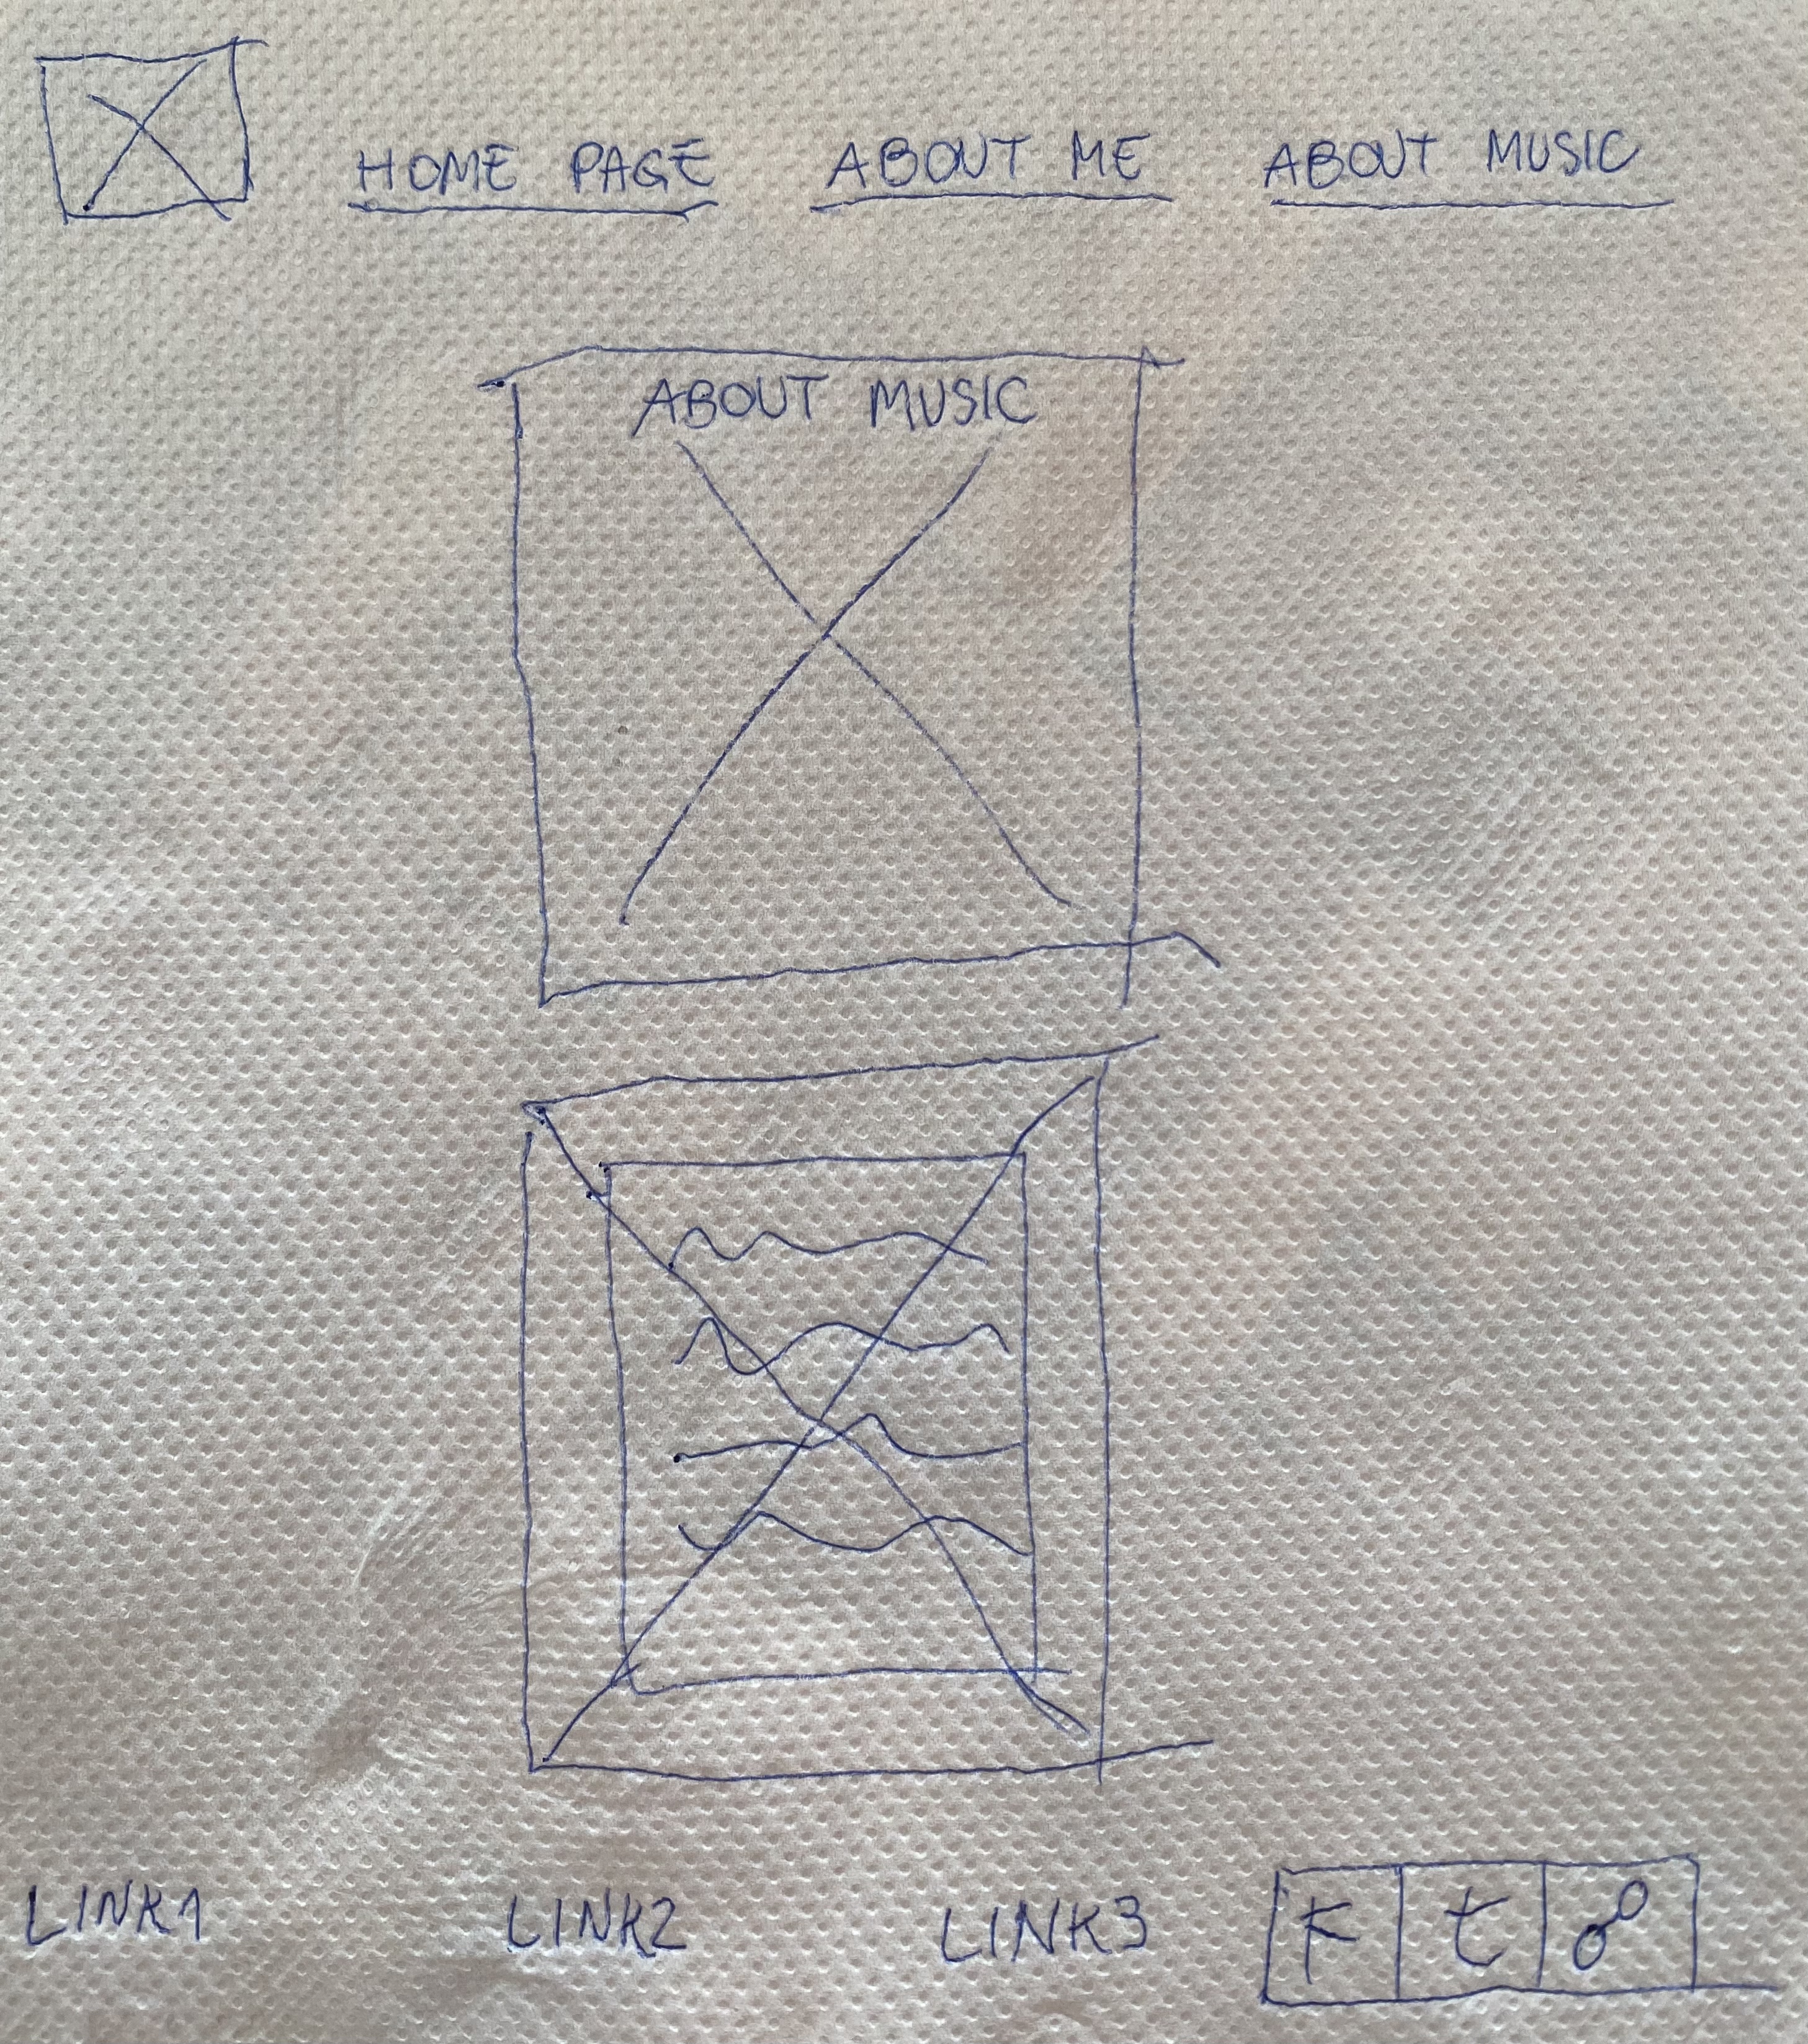 HOME PAGE ABOUT ME ABOUT MUSIC
ABOUT MUSIC
LINK1 LINK2 LINK3 F t